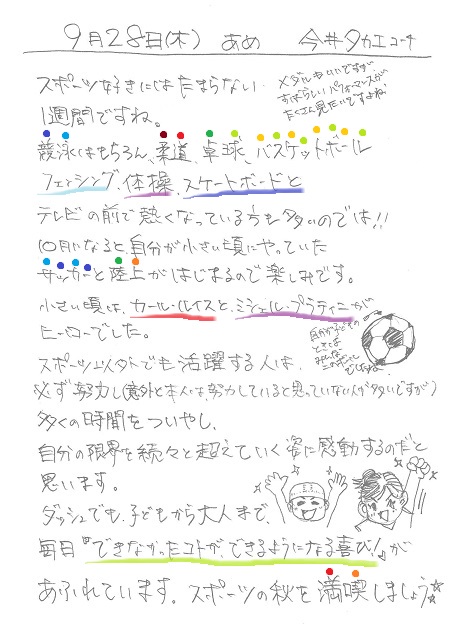 9月28日(木) あめ 今井タカエコーチ
スポーツ好きにはたまらない
1週間ですね。
メダルもいいですが、
すばらしいパフォーマンスが
たくさん見たいですよね
競泳はもちろん、柔道、卓球、バスケットボール
フェンシング、体操、スケートボードと
テレビの前で熱くなっている方も多いのでは!!
10月になると自分が小さい頃にやっていた
サッカーと陸上がはじまるので楽しみです。
小さい頃は、カールルイスと、ミシェル・プラティニが
ヒーローでした。
自分が子どもの
ときは
みんな
このボール
でしたね
スポーツ以外でも活躍する人は、
必ず努力し(意外と本人は、努力していると思っていない人が多いですが)
多くの時間をついやし、
自分の限界を続々と超えていく姿に感動するのだと
思います。
ダッシュでも、子どもから大人まで、
毎日『できなかったコトが、できるようになる喜び!』が
あふれています。スポーツの秋を満喫しましょう☆